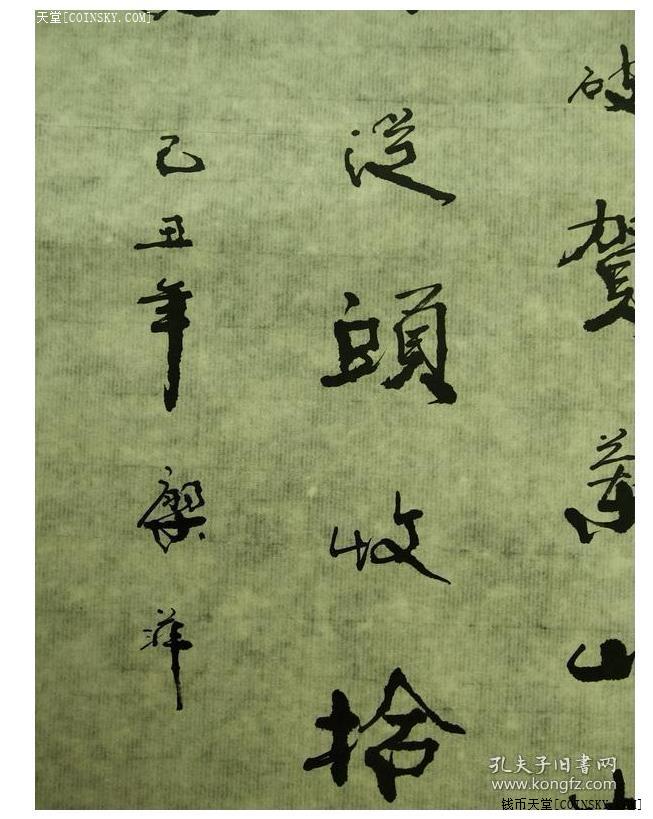 天堂[COINSKY.COM]
破賀蘭山
從頭收拾
己丑年
孔夫子旧書网
www.kongfz.com
钱币天堂[COINSKY.COM]